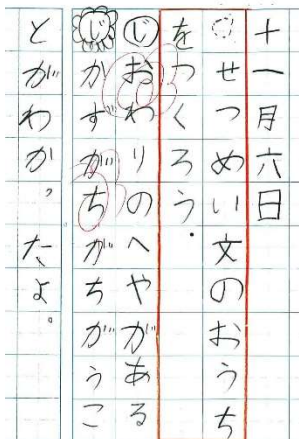 十一月六日
せつめい文のおうち
をつくろう.
じおわりのへやがある
じかずがちがちがうこ
とがわかったよ。